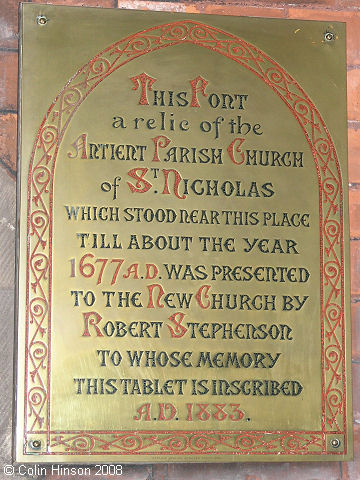 This Font
a relic of the
Antient Parish Church
of St. Nicholas
which stood near this place
till about the year
1677 A.D. was presented
to the New Church by
Robert Stephenson
to whose memory
this tablet is inscribed
A.D. 1883.
© Colin Hinson 2008